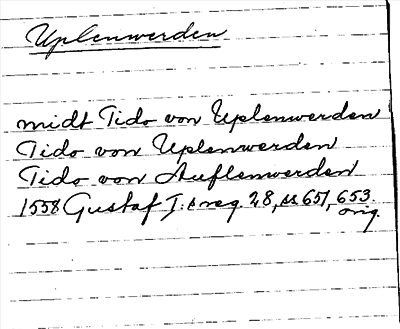 Uplenwerden
midt Tido von Uplenwerden
Tido von Uplenwerden
Tido von Auflenwerden
1558 Gustaf I:s reg. 28, ss 651, 653.
orig.